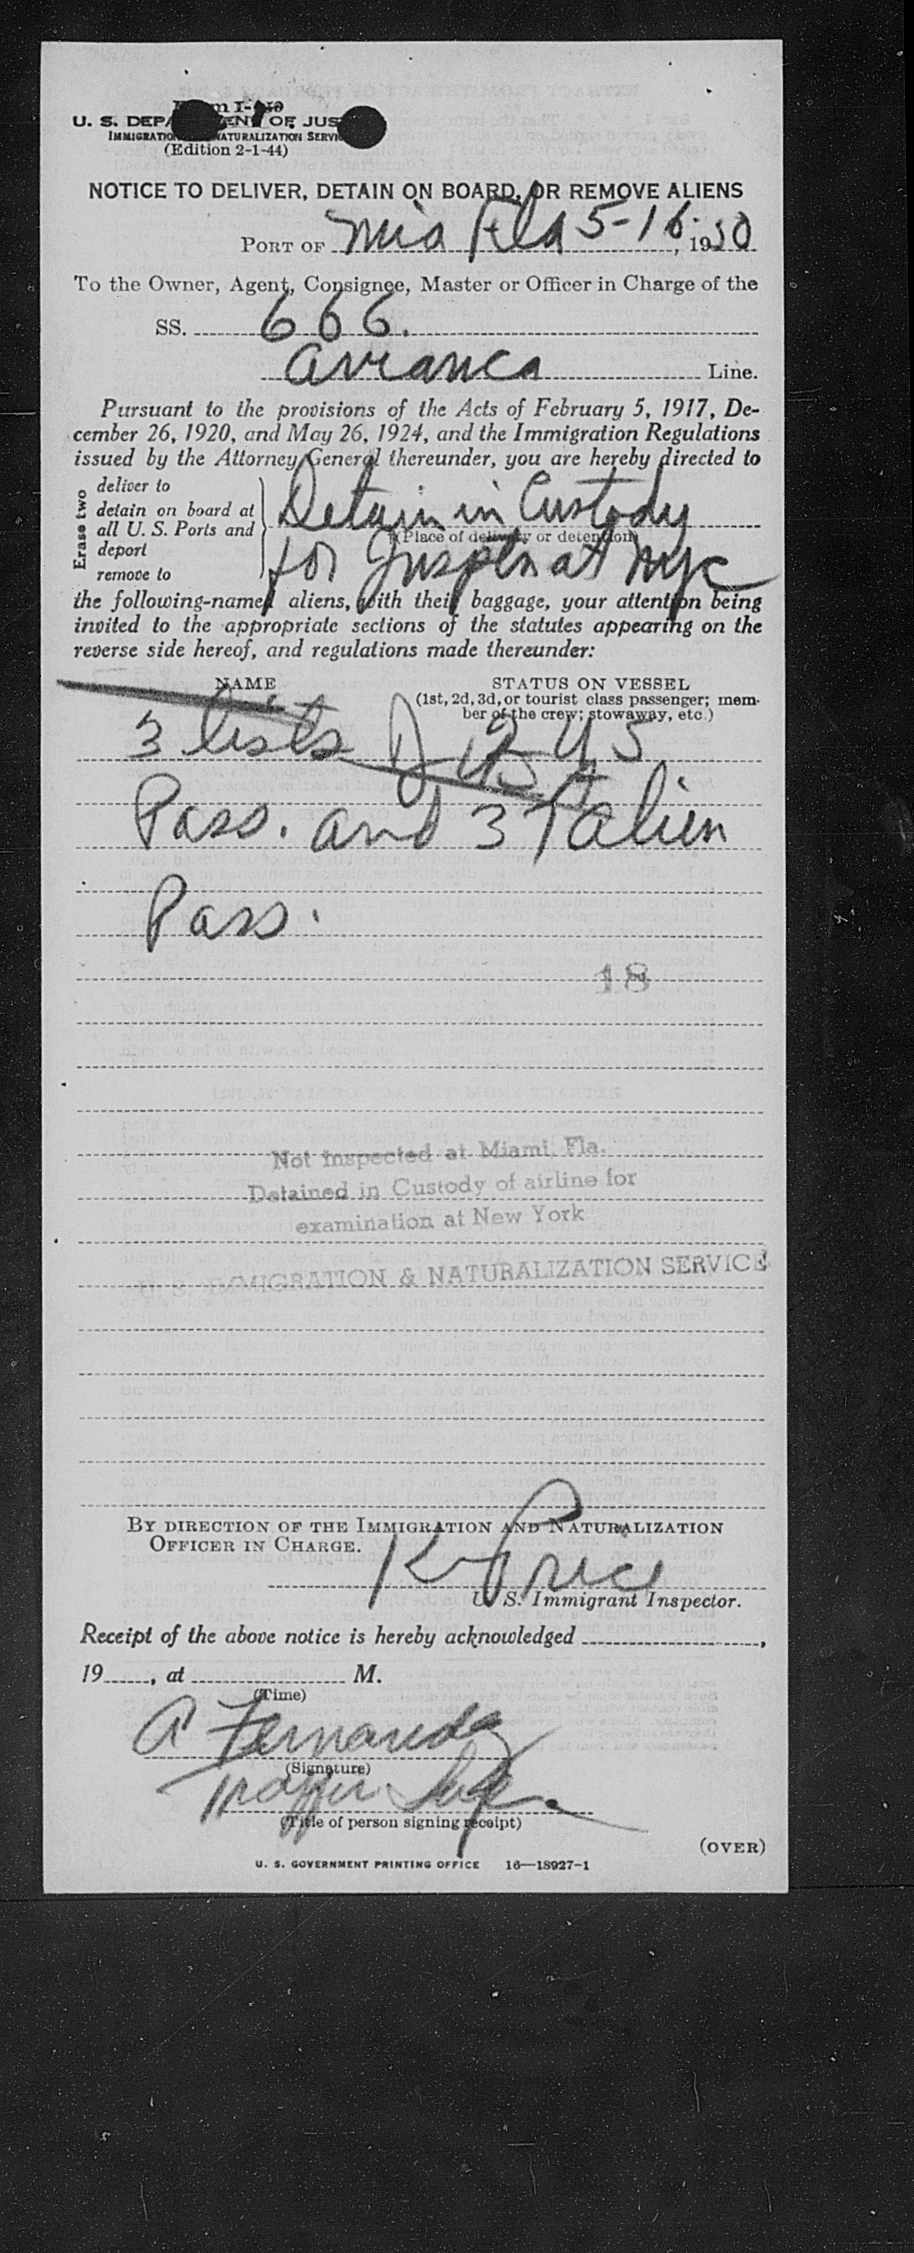 U. S. DEP OF JUS
(Edition 2-1-44)
NOTICE TO DELIVER, DETAIN ON BOARD, OR REMOVE ALIENS
PORT OF Mia Fla 5-16-, 1950
To the Owner, Agent, Consignee, Master or Officer in Charge of the
SS. 666.
Avianca Line.
Pursuant to the provisions of the Acts of February 5, 1917, De-
cember 26, 1920, and May 26, 1924, and the Immigration Regulations
issued by the Attorney General thereunder, you are hereby directed to
Erase two
deliver to
detain on board at
all U. S. Ports and
deport
remove to
Detain in Custody
(Place of delivery or detention)
for Inspctn at NYC
the following-named aliens, with their baggage, your attention being
invited to the appropriate sections of the statutes appearing on the
reverse side hereof, and regulations made thereunder:
NAME STATUS ON VESSEL
(1st, 2d, 3d, or tourist class passenger; mem-
ber of the crew; stowaway, etc.)
3 lists
Pass. and alien
Pass.
18
Not Inspected at Miami, Fla.
Detained in Custody of airline for
examination at New York
U. S. IMMIGRATION & NATURALIZATION SERVICE
BY DIRECTION OF THE IMMIGRATION AND NATURALIZATION
OFFICER IN CHARGE.
K Price
U. S. Immigrant Inspector.
Receipt of the above notice is hereby acknowledged ,
19 , at M.
(Time)
A Fernandez
(Signature)
Traffic
(Title of person signing receipt)
(OVER)
U. S. GOVERNMENT PRINTING OFFICE 16—18927-1